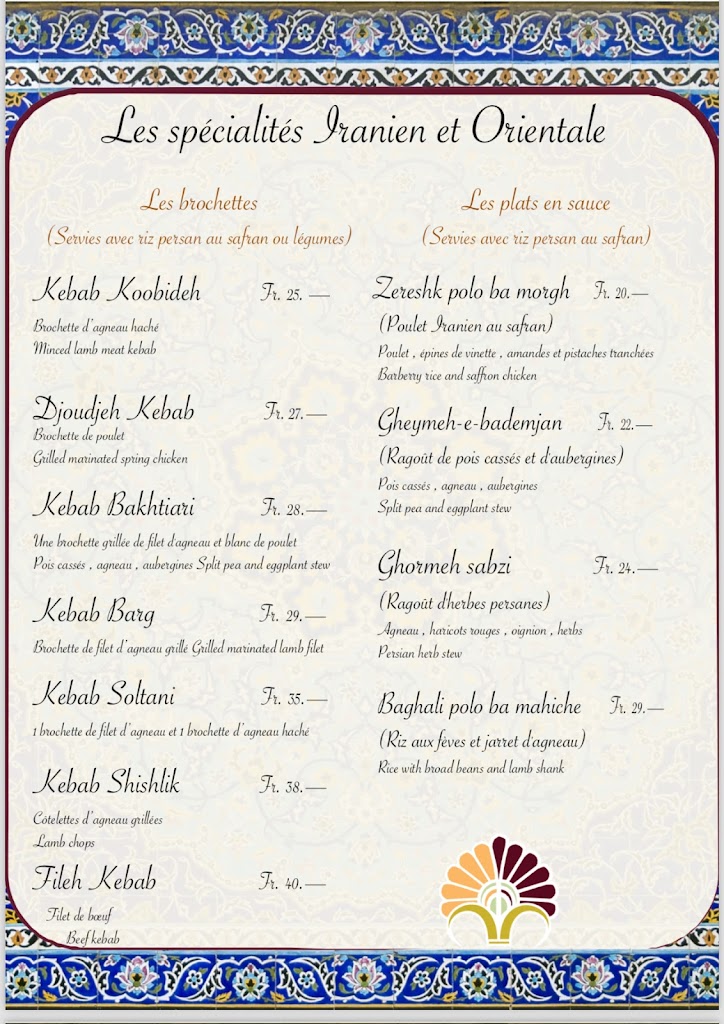 Les spécialités Iranien et Orientale
Les brochettes
(Servies avec riz persan au safran ou légumes)
Kebab Koobideh Fr. 25. —
Brochette d'agneau haché
Minced lamb meat kebab
Djoudjeh Kebab Fr. 27.—
Brochette de poulet
Grilled marinated spring chicken
Kebab Bakhtiari Fr. 28.—
Une brochette grillée de filet d'agneau et blanc de poulet
Pois cassés , agneau , aubergines Split pea and eggplant stew
Kebab Barg Fr. 29.—
Brochette de filet d'agneau grillé Grilled marinated lamb filet
Kebab Soltani Fr. 35.—
1 brochette de filet d'agneau et 1 brochette d'agneau haché
Kebab Shishlik Fr. 38.—
Côtelettes d'agneau grillées
Lamb chops
Fileh Kebab Fr. 40.—
Filet de bœuf
Beef kebab
Les plats en sauce
(Servies avec riz persan au safran)
Zereshk polo ba morgh Fr. 20.—
(Poulet Iranien au safran)
Poulet , épines de vinette , amandes et pistaches tranchées
Barberry rice and saffron chicken
Gheymeh-e-bademjan Fr. 22.—
(Ragoût de pois cassés et d'aubergines)
Pois cassés , agneau , aubergines
Split pea and eggplant stew
Ghormeh sabzi Fr. 24.—
(Ragoût d'herbes persanes)
Agneau , haricots rouges , oignion , herbs
Persian herb stew
Baghali polo ba mahiche Fr. 29.—
(Riz aux fèves et jarret d'agneau)
Rice with broad beans and lamb shank